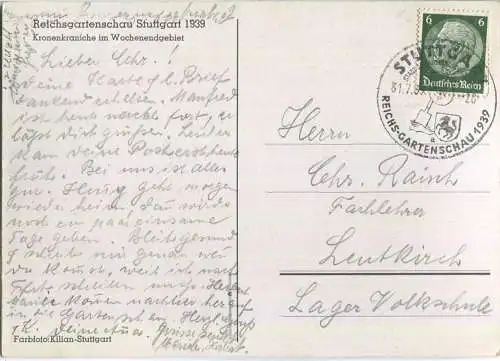 Reichsgartenschau Stuttgart 1939
Kronenkraniche im Wochenendgebiet
Lieber Chr.!
Deine Karte & Brief
dankend erhalten. Manfred
ist heute nacht fort, er
lässt dich grüßen. Leider
kam deine Post erst heute
früh. Bei uns ist alles
gut. geht morgen
wieder heim. Dann wirds
noch ein paar einsame
Tage geben. Bleib gesund
& schreibe mir genau wen
du kommst, weil ich nach
schreiben muss.
kommen nachher
in die Gartenschau. Herzl. Gruß
& K. deine
Farbfoto: Kilian-Stuttgart
6 6
Deutsches Reich
STUTTGART
31.7.39
REICHS-GARTENSCHAU 1939
a
Herrn
Chr. Raisch
Fachlehrer
Leutkirch
Lager Volksschule